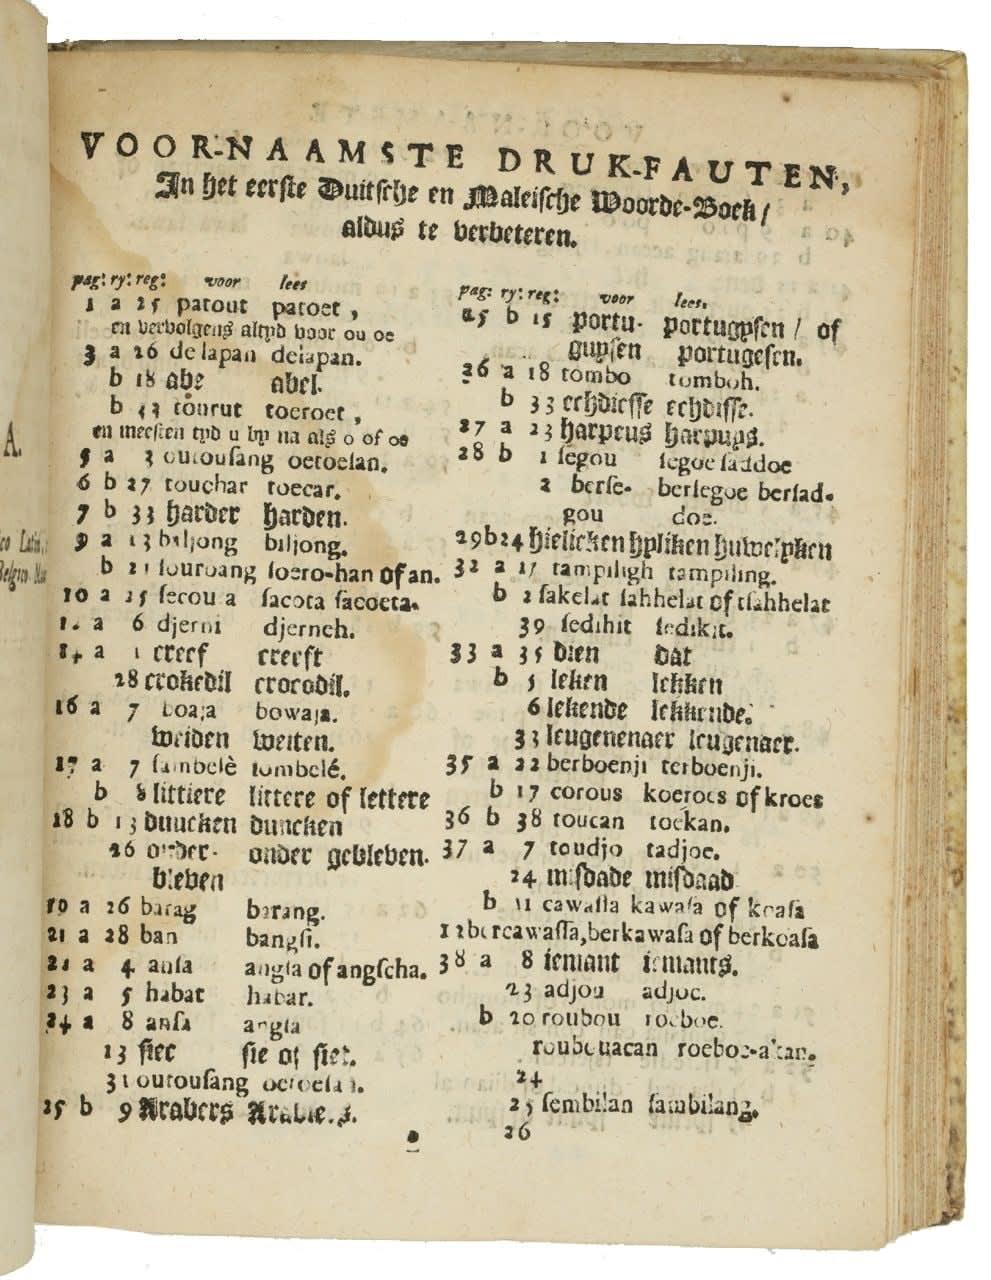 VOOR-NAAMSTE DRUK-FAUTEN,
In het eerste Duitsche en Maleische Woorde-Boek/
aldus te verbeteren.
pag: ry: reg: voor lees
1 a 25 patout patoet,
en vervolgens altyd voor ou oe
3 a 26 de lapan delapan.
b 18 abe abel.
b 43 tourut toeroet,
en meesten tyd u by na als o of oe
5 a 3 outousang oetoesan.
6 b 27 touchar toecar.
7 b 33 harder harden.
9 a 13 baljong biljong.
b 21 souroang soero-han of an.
10 a 25 secou a sacota sacoeta.
a 6 djerni djerneh.
14 a 1 creef creeft
28 crokedil crocodil.
16 a 7 boaja bowaja.
weiden weiten.
17 a 7 sambelè tombelé.
b 8 littiere littere of lettere
18 b 13 duucken duncken
26 onder- onder gebleben.
bleben
19 a 26 barag barang.
21 a 28 ban bangsi.
21 a 4 ansa angsa of angscha.
23 a 5 habat habar.
24 a 8 ansa angsa
13 siec sie of siet.
31 outousang oetoesan.
25 b 9 Arabers
pag: ry: reg: voor lees.
25 b 15 portu- portugysen / of
guysen portugesen.
26 a 18 tombo tomboh.
b 33 echdiesse echdisse.
27 a 23 harpeus harpuys.
28 b 1 segou segoe saddoe
2 berse- bersegoe bersad-
gou doe.
29 b 24 hielicken hyliken huwelyken
32 a 17 tampiligh tampiling.
b 2 sakelat sahhelat of tsahhelat
39 sedihit sedikit.
33 a 35 dien dat
b 5 leken lekken
6 lekende lekkende.
33 leugenenaer leugenaer.
35 a 22 berboenji terboenji.
b 17 corous koeroes of kroes
36 b 38 toucan toekan.
37 a 7 toudjo tadjoe.
24 misdade misdaad
b 11 cawassa kawasa of koasa
12 bercawassa, berkawasa of berkoasa
38 a 8 iemant iemants.
23 adjou adjoe.
b 20 roubou roeboe.
roubouacan roeboe-akan.
24
25 sembilan sambilang.
26
A.